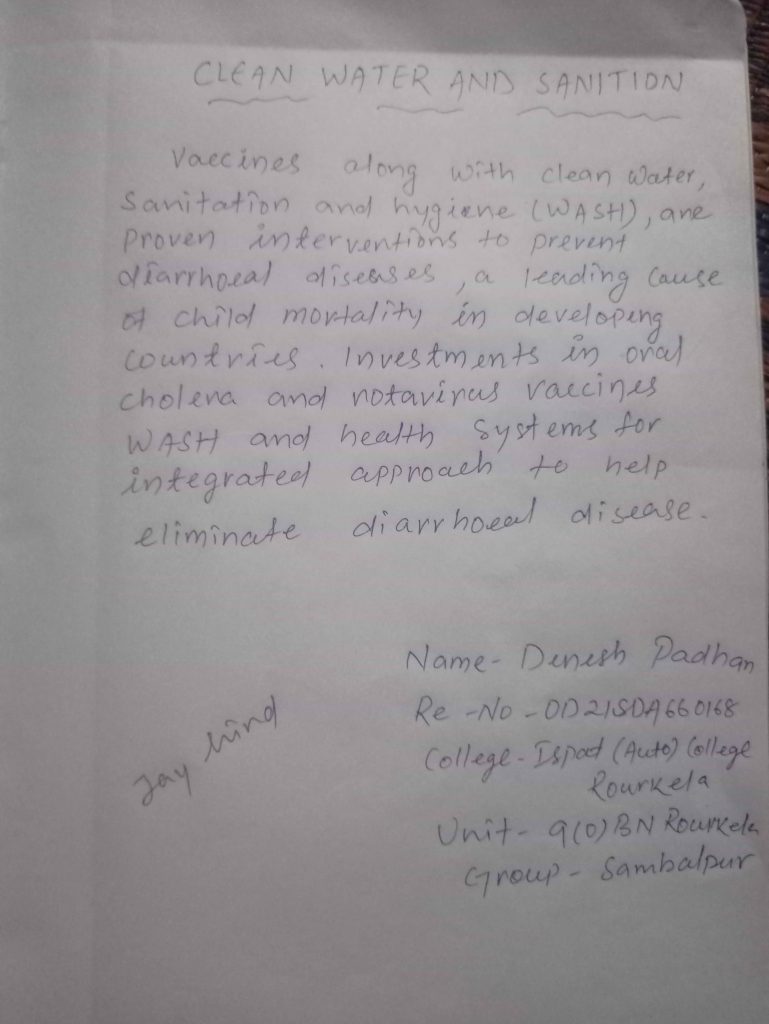 CLEAN WATER AND SANITION
Vaccines along with clean water,
Sanitation and hygiene (WASH), are
proven interventions to prevent
diarrhoeal diseases, a leading cause
of child mortality in developing
countries. Investments in oral
cholera and rotavirus vaccines
WASH and health systems for
integrated approach to help
eliminate diarrhoeal disease.
Name- Denesh Padhan
Re -No - OD21SDA660168
College- Ispat (Auto) College
Rourkela
Jay hind
Unit- 9(O)BN Rourkela
Group - Sambalpur